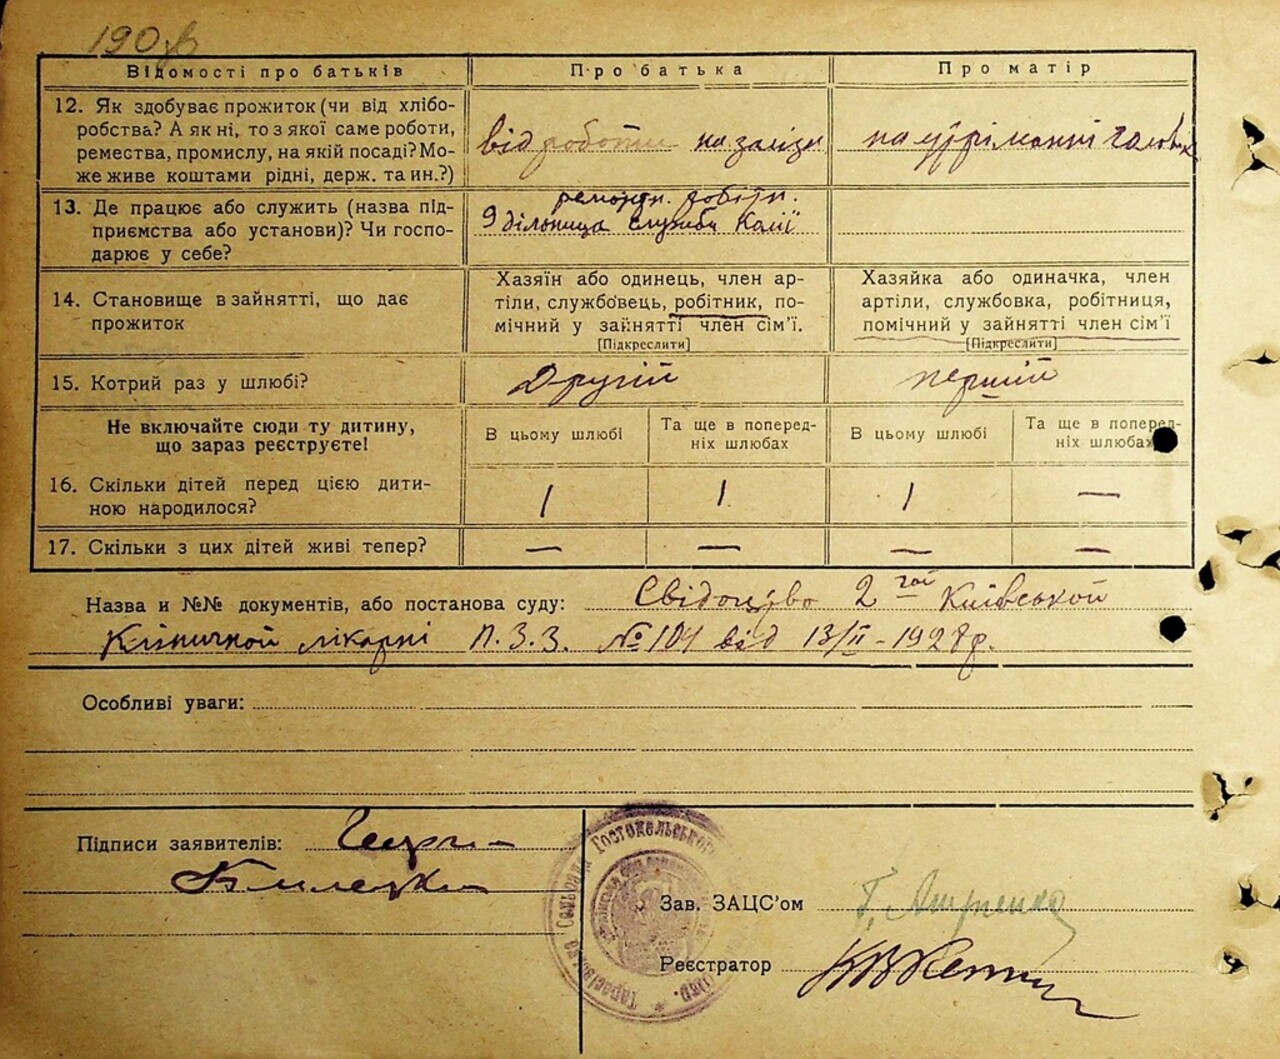 190 зв
Відомості про батьків
Про батька
Про матір
12. Як здобуває прожиток (чи від хлібо-
робства? А як ні, то з якої саме роботи,
ремества, промислу, на якій посаді? Мо-
же живе коштами рідні, держ. та ин.?)
від роботи на залізн
на утріманні чоловік
13. Де працює або служить (назва під-
приємства або установи)? Чи госпо-
дарює у себе?
ремонтн. робітн.
9 дільниця служби Колії
14. Становище в зайнятті, що дає
прожиток
Хазяїн або одинець, член ар-
тіли, службовець, робітник, по-
мічний у зайнятті член сім’ї.
[Підкреслити]
Хазяйка або одиначка, член
артіли, службовка, робітниця,
помічний у зайнятті член сім’ї
[Підкреслити]
15. Котрий раз у шлюбі?
Другій
першій
Не включайте сюди ту дитину,
що зараз реєструєте!
В цьому шлюбі
Та ще в поперед-
ніх шлюбах
В цьому шлюбі
Та ще в поперед-
ніх шлюбах
16. Скільки дітей перед цією дити-
ною народилося?
1
1
1
—
17. Скільки з цих дітей живі тепер?
—
—
—
—
Назва и №№ документів, або постанова суду: Свідоцтво 2гой Київської
Клінічной лікарні П.З.З. № 104 від 13/II-1928 р.
Особливі уваги:
Підписи заявителів:
Билецки
Зав. ЗАЦС’ом
Реєстратор
Гостомельського